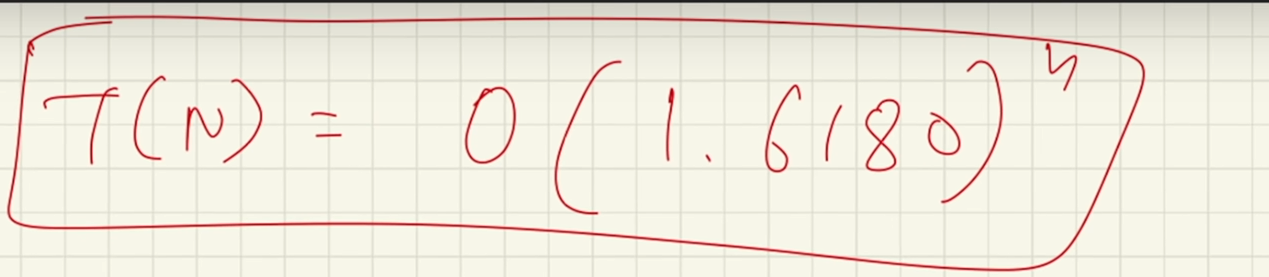 T(N) = O(1.6180)^n